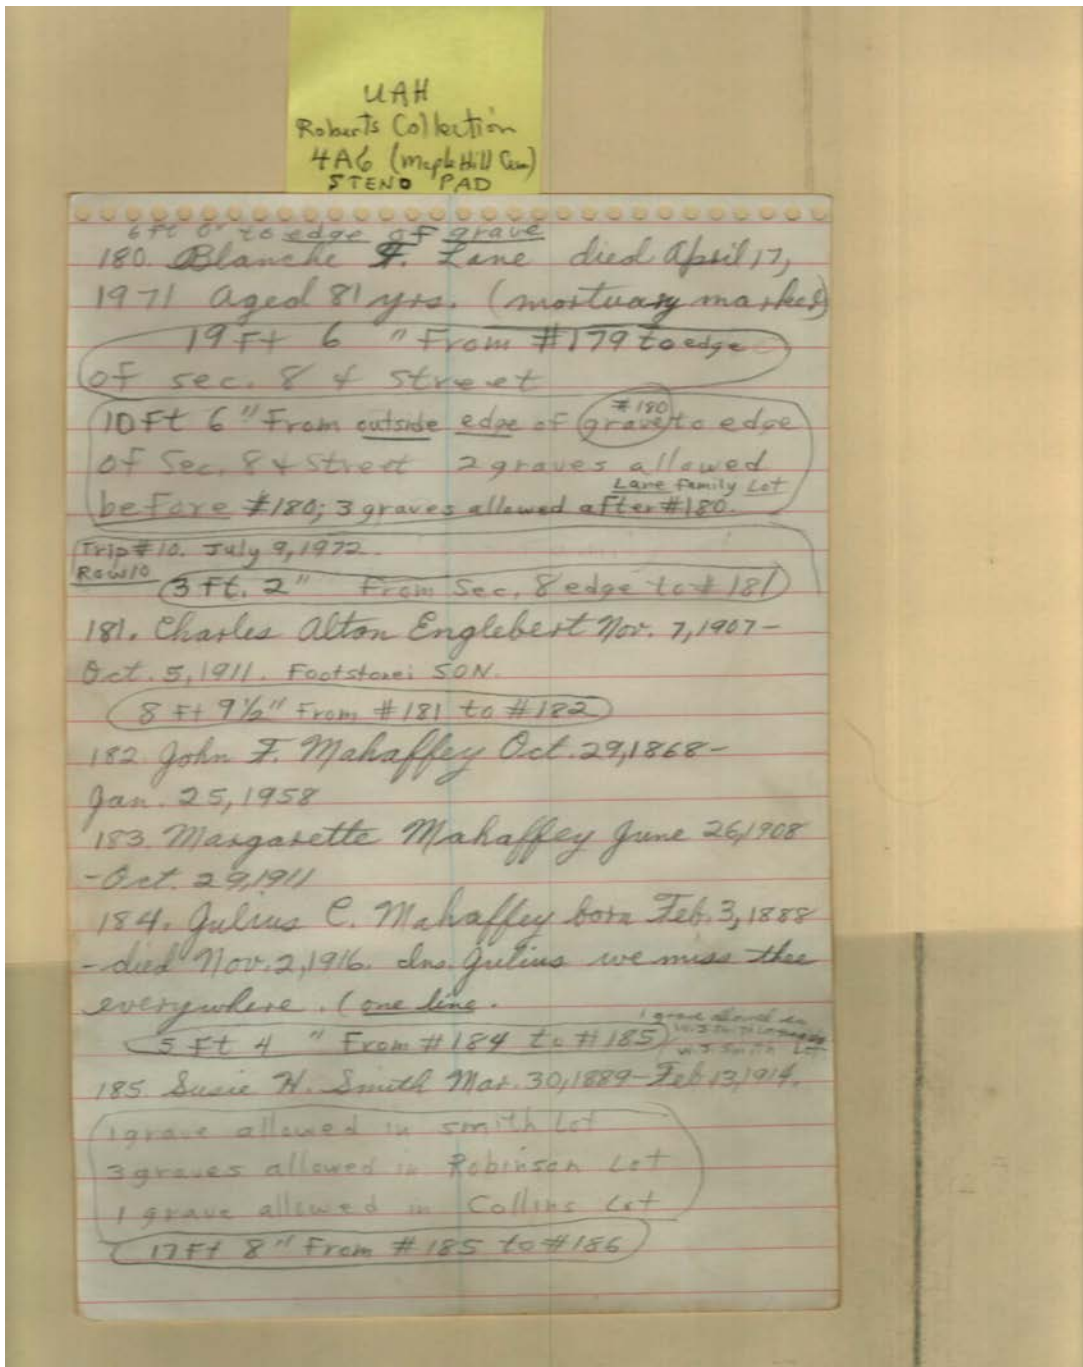 UAH
Roberts Collection
4A6 (Maple Hill Cem)
STENO PAD
6 ft 0" to edge of grave
180. Blanche F. Lane died April 17,
1971 Aged 81 yrs. (mortuary marker)
19 Ft 6 " From #179 to edge
of sec. 8 & street
10 Ft 6" From outside edge of grave #180 to edge
of Sec. 8 & Street 2 graves allowed
Lane Family Lot
before #180; 3 graves allowed after #180.
Trip #10. July 9, 1972.
Row 10
3 Ft. 2" From Sec. 8 edge to #181
181. Charles Alton Englebert Nov. 7, 1907-
Oct. 5, 1911. Footstone: SON.
8 Ft 9½" From #181 to #182
182. John F. Mahaffey Oct. 29, 1868-
Jan. 25, 1958
183. Margarette Mahaffey June 26, 1908
- Oct. 29, 1911
184. Julius C. Mahaffey born Feb. 3, 1888
- died Nov. 2, 1916. Ins. Julius we miss thee
everywhere. (one line.
1 grave allowed in
W.S. Smith
5 Ft 4 " From #184 to #185
W.S. Smith Lot
185. Susie H. Smith Mar. 30, 1889-Feb 13, 1914.
1 grave allowed in Smith Lot
3 graves allowed in Robinson Lot
1 grave allowed in Collins Lot
17 Ft 8" From #185 to #186